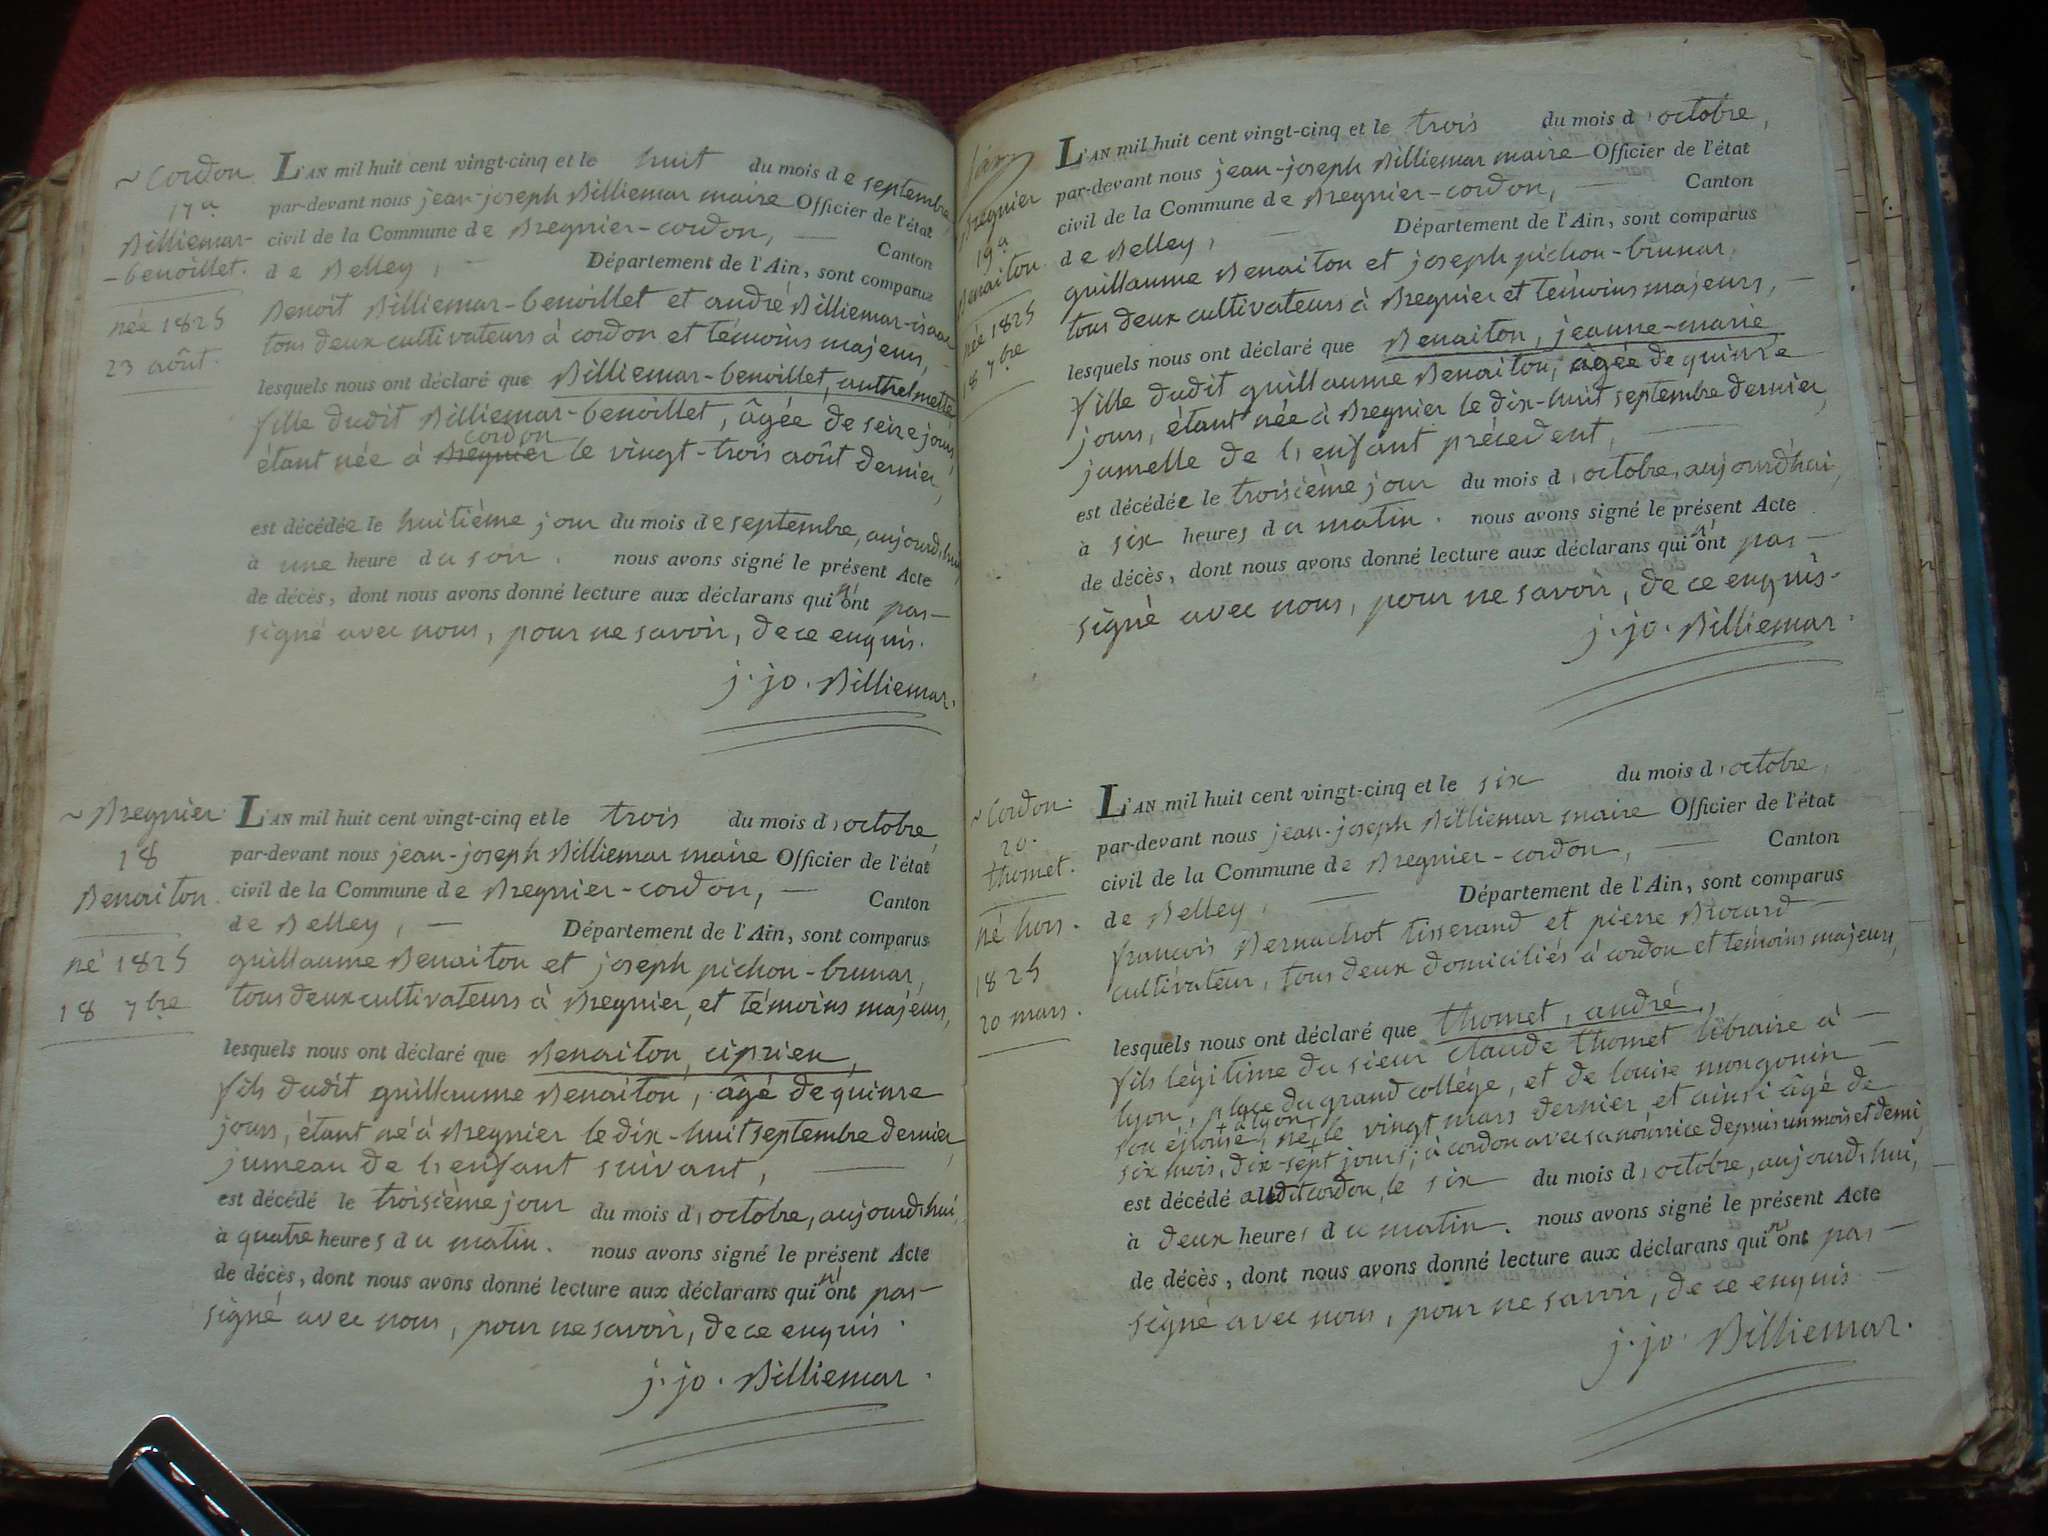 ~ Cordon.
17a
Billiemar-
-benoillet.
née 1825
23 août.
L'AN mil huit cent vingt-cinq et le huit du mois de septembre,
par-devant nous jean-joseph Billiemar maire Officier de l'état
civil de la Commune de Bregnier-cordon, — Canton
de Belley, — Département de l'Ain, sont comparus
Benoit Billiemar-benoillet et andré Billiemar-isaac
tous deux cultivateurs à cordon et témoins majeurs,
lesquels nous ont déclaré que Billiemar-benoillet, anthelmette
fille dudit Billiemar-benoillet, âgée de seize jours,
cordon
étant née à Bregnier le vingt-trois août dernier,
est décédée le huitième jour du mois de septembre, aujourd'hui,
à une heure du soir. nous avons signé le présent Acte
de décès, dont nous avons donné lecture aux déclarans qui n'ont pas —
signé avec nous, pour ne savoir, de ce enquis.
j. jo. Billiemar.
~ Bregnier
18
Benaiton.
né 1825
18 7bre
L'AN mil huit cent vingt-cinq et le trois du mois d'octobre,
par-devant nous jean-joseph Billiemar maire Officier de l'état
civil de la Commune de Bregnier-cordon, — Canton
de Belley, — Département de l'Ain, sont comparus
guillaume Benaiton et joseph pichon-brunar,
tous deux cultivateurs à Bregnier, et témoins majeurs,
lesquels nous ont déclaré que Benaiton, ciprien,
fils dudit guillaume Benaiton, âgé de quinze
jours, étant né à Bregnier le dix-huit septembre dernier,
jumeau de l'enfant suivant, —
est décédé le troisième jour du mois d'octobre, aujourd'hui,
à quatre heures du matin. nous avons signé le présent Acte
de décès, dont nous avons donné lecture aux déclarans qui n'ont pas —
signé avec nous, pour ne savoir, de ce enquis.
j. jo. Billiemar.
Bregnier
19a
Benaiton
née 1825
18 7bre
L'AN mil huit cent vingt-cinq et le trois du mois d'octobre,
par-devant nous jean-joseph Billiemar maire Officier de l'état
civil de la Commune de Bregnier-cordon, — Canton
de Belley, — Département de l'Ain, sont comparus
guillaume Benaiton et joseph pichon-brunar,
tous deux cultivateurs à Bregnier et témoins majeurs, —
lesquels nous ont déclaré que Benaiton, jeanne-marie
fille dudit guillaume Benaiton, âgée de quinze
jours, étant née à Bregnier le dix-huit septembre dernier,
jumelle de l'enfant précedent, —
est décédée le troisième jour du mois d'octobre, aujourd'hui,
à six heures du matin. nous avons signé le présent Acte
de décès, dont nous avons donné lecture aux déclarans qui n'ont pas —
signé avec nous, pour ne savoir, de ce enquis.
j. jo. Billiemar.
~ Cordon.
20.
thomet.
né hors.
1825
20 mars.
L'AN mil huit cent vingt-cinq et le six du mois d'octobre,
par-devant nous jean-joseph Billiemar maire Officier de l'état
civil de la Commune de Bregnier-cordon, — Canton
de Belley, — Département de l'Ain, sont comparus
françois Bernachot tisserand et pierre Brocard —
cultivateur, tous deux domiciliés à cordon et témoins majeurs,
lesquels nous ont déclaré que thomet, andré,
fils légitime du sieur claude thomet libraire à —
lyon, place du grand collége, et de louise mongouin —
à lyon
son épouse, né, le vingt mars dernier, et ainsi âgé de
six mois, dix-sept jours; à cordon avec sa nourrice depuis un mois et demi,
est décédé audit cordon, le six du mois d'octobre, aujourd'hui,
à deux heures du matin. nous avons signé le présent Acte
de décès, dont nous avons donné lecture aux déclarans qui n'ont pas —
signé avec nous, pour ne savoir, de ce enquis —
j. jo. Billiemar.